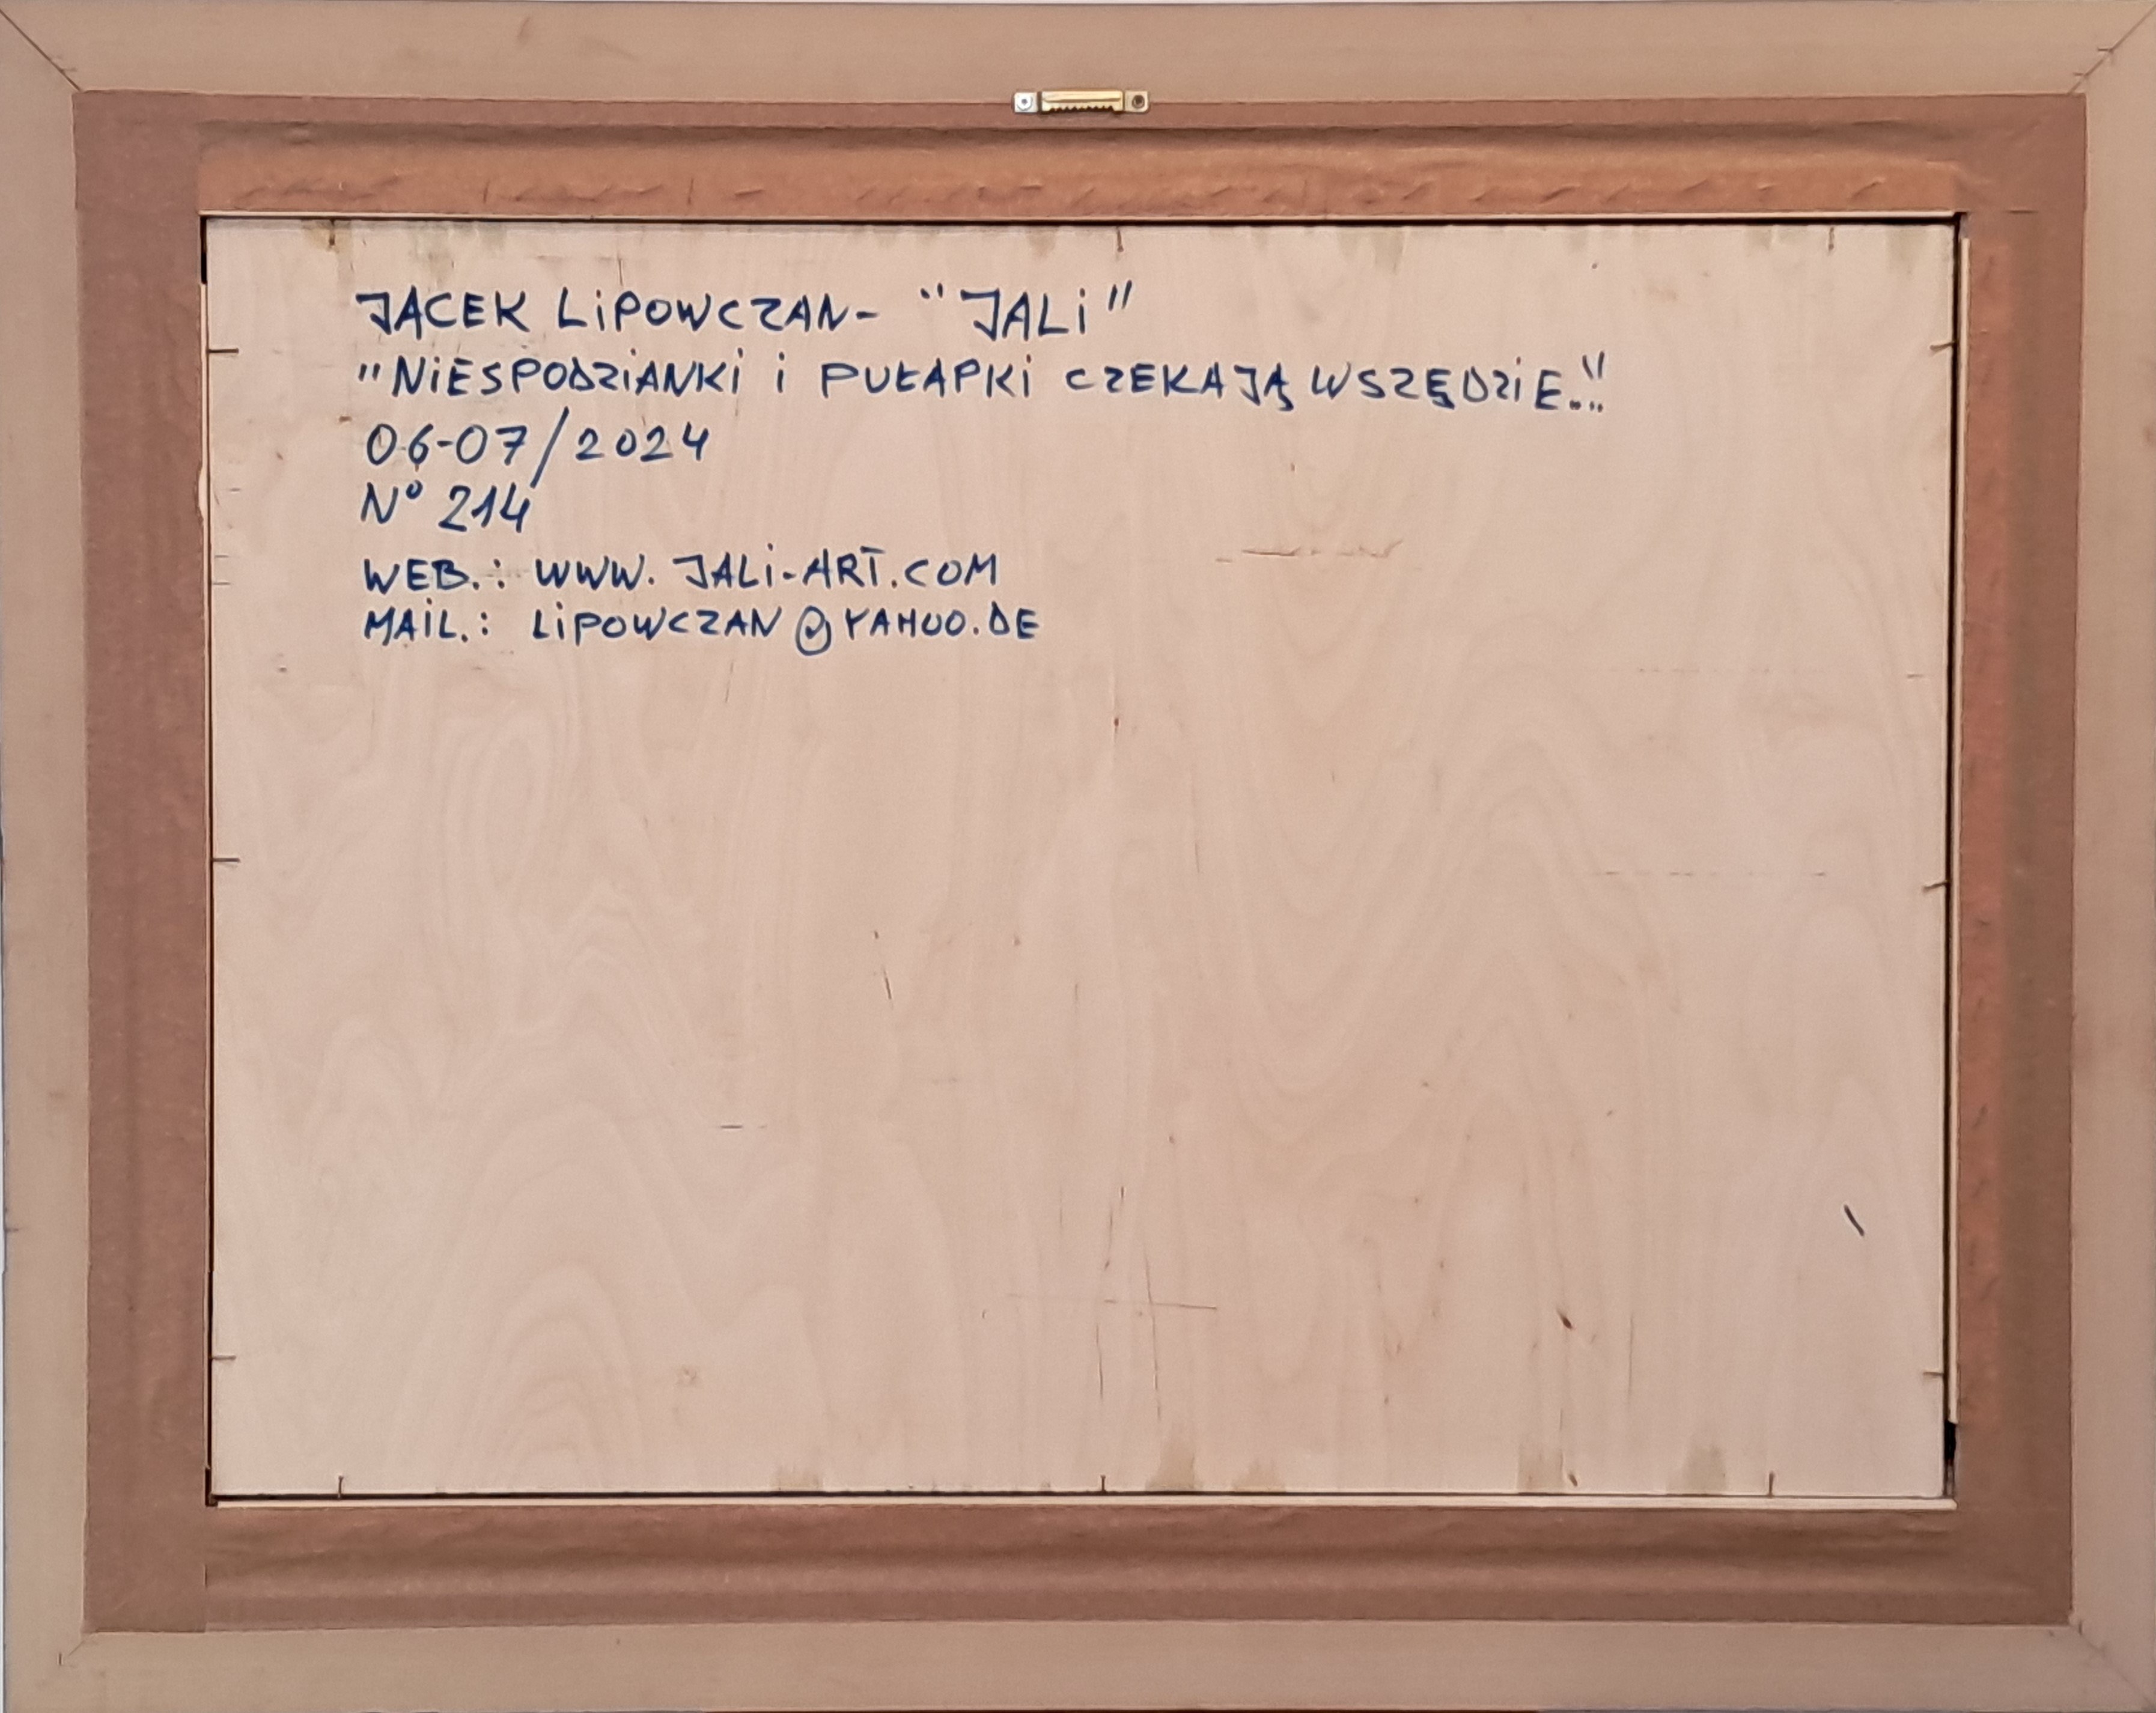 JACEK LiPOWCZAN- "JALi"
"NiESPODZiANKi i PUŁAPKi CZEKAJĄ WSZĘDZiE..."
06-07/2024
N° 214
WEB.: WWW. JALi-ART.COM
MAiL.: LiPOWCZAN@YAHOO.DE